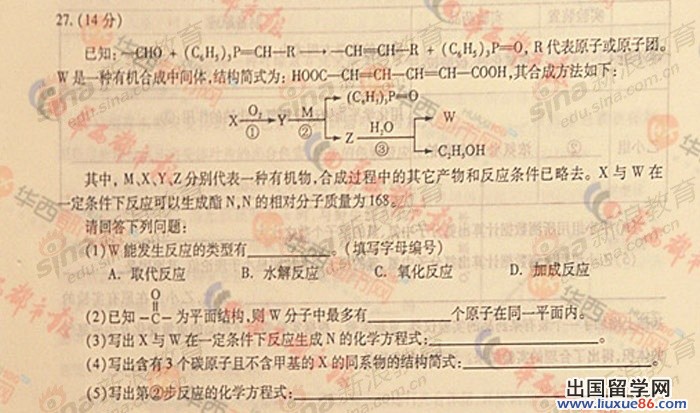 27.(14分)
已知:—CHO + (C₆H₅)₃P=CH—R ⟶ —CH=CH—R + (C₆H₅)₃P=O, R代表原子或原子团。
W是一种有机合成中间体,结构简式为:HOOC—CH=CH—CH=CH—COOH,其合成方法如下:
(C₆H₅)₃P=O
X O₂ ① Y M ② W
Z H₂O ③
C₂H₅OH
其中,M、X、Y、Z分别代表一种有机物,合成过程中的其它产物和反应条件已略去。X与W在
一定条件下反应可以生成酯N,N的相对分子质量为168。
请回答下列问题:
(1)W能发生反应的类型有________。(填写字母编号)
A. 取代反应 B. 水解反应 C. 氧化反应 D. 加成反应
O
(2)已知 —C— 为平面结构,则W分子中最多有________个原子在同一平面内。
(3)写出X与W在一定条件下反应生成N的化学方程式:________。
(4)写出含有3个碳原子且不含甲基的X的同系物的结构简式:________。
(5)写出第②步反应的化学方程式:________
华西都市报
新浪教育
edu.sina.com.cn
出国留学网
www.liuxue86.com